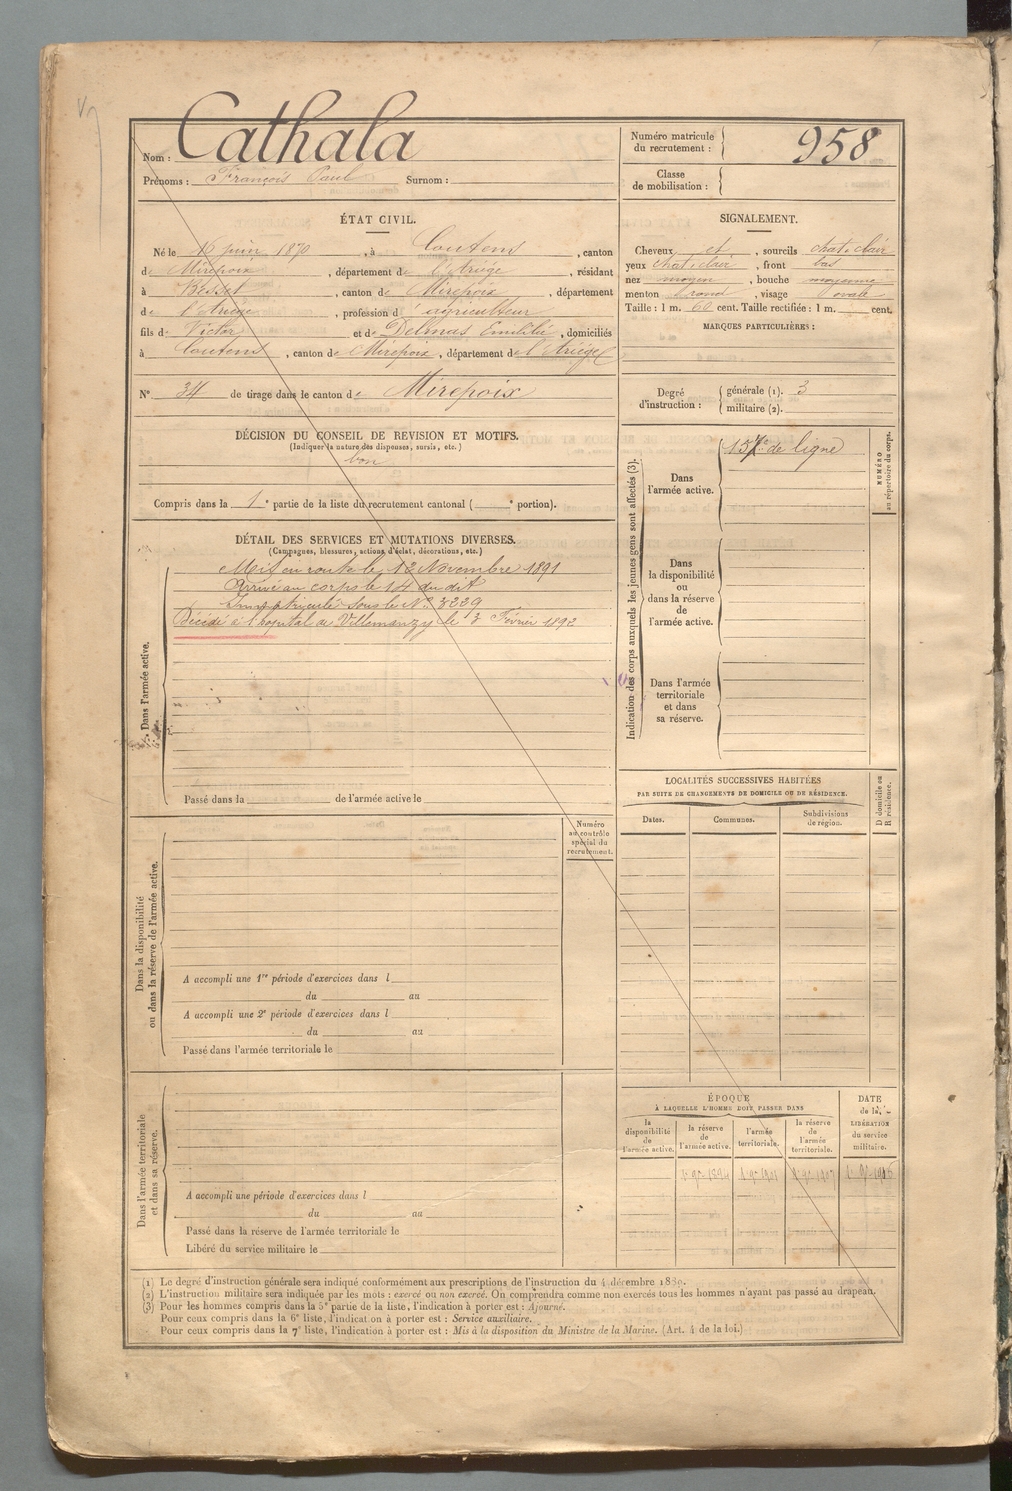 Nom : Cathala
Prénoms : François Paul Surnom :
Numéro matricule du recrutement : 958
Classe de mobilisation :
ÉTAT CIVIL.
Né le 16 juin 1870, à Coutens, canton
de Mirepoix, département de l'Ariège, résidant
à Besset, canton de Mirepoix, département
de l'Ariège, profession d'agriculteur
fils de Victor et de Delmas Emilie, domiciliés
à Coutens, canton de Mirepoix, département de l'Ariège
N° 34 de tirage dans le canton de Mirepoix
DÉCISION DU CONSEIL DE REVISION ET MOTIFS.
(Indiquer la nature des dispenses, sursis, etc.)
bon
Compris dans la 1e partie de la liste du recrutement cantonal ( e portion).
SIGNALEMENT.
Cheveux et, sourcils chat. clair
yeux chat. clair, front bas
nez moyen, bouche moyenne
menton rond, visage ovale
Taille : 1 m. 60 cent. Taille rectifiée : 1 m. cent.
MARQUES PARTICULIÈRES :
Degré d'instruction : générale (1). 3
militaire (2).
DÉTAIL DES SERVICES ET MUTATIONS DIVERSES.
(Campagnes, blessures, actions d'éclat, décorations, etc.)
Dans l'armée active.
Mis en route le 12 Novembre 1891
Arrivé au corps le 14 du dit
Immatriculé sous le N° 3229
Décédé à l'hopital de Villemanzy le 3 Février 1892
Passé dans la de l'armée active le
Indication des corps auxquels les jeunes gens sont affectés (3).
NUMÉRO au répertoire du corps.
Dans l'armée active.
157e de ligne
Dans la disponibilité ou dans la réserve de l'armée active.
Dans l'armée territoriale et dans sa réserve.
LOCALITÉS SUCCESSIVES HABITÉES
PAR SUITE DE CHANGEMENTS DE DOMICILE OU DE RÉSIDENCE.
D domicile ou R résidence.
Dates. Communes. Subdivisions de région.
Numéro au contrôle spécial du recrutement.
Dans la disponibilité ou dans la réserve de l'armée active.
A accompli une 1re période d'exercices dans l
du au
A accompli une 2e période d'exercices dans l
du au
Passé dans l'armée territoriale le
Dans l'armée territoriale et dans sa réserve.
A accompli une période d'exercices dans l
du au
Passé dans la réserve de l'armée territoriale le
Libéré du service militaire le
ÉPOQUE
À LAQUELLE L'HOMME DOIT PASSER DANS
DATE de la LIBÉRATION du service militaire.
la disponibilité de l'armée active. la réserve de l'armée active. l'armée territoriale. la réserve de l'armée territoriale.
(1) Le degré d'instruction générale sera indiqué conformément aux prescriptions de l'instruction du 4 décembre 1889.
(2) L'instruction militaire sera indiquée par les mots : exercé ou non exercé. On comprendra comme non exercés tous les hommes n'ayant pas passé au drapeau.
(3) Pour les hommes compris dans la 5e partie de la liste, l'indication à porter est : Ajourné.
Pour ceux compris dans la 6e liste, l'indication à porter est : Service auxiliaire.
Pour ceux compris dans la 7e liste, l'indication à porter est : Mis à la disposition du Ministre de la Marine. (Art. 4 de la loi.)